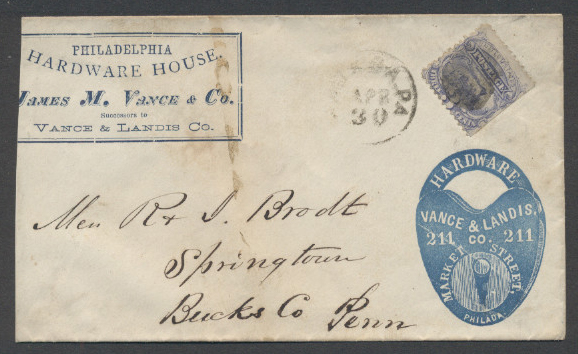 PHILADELPHIA
HARDWARE HOUSE.
JAMES M. VANCE & Co.
Successors to
VANCE & LANDIS Co.
PA
APR
30
HARDWARE
VANCE & LANDIS,
211 CO. 211
MARKET STREET,
PHILADA.
R & J. Brodt
Springtown
Bucks Co Penn